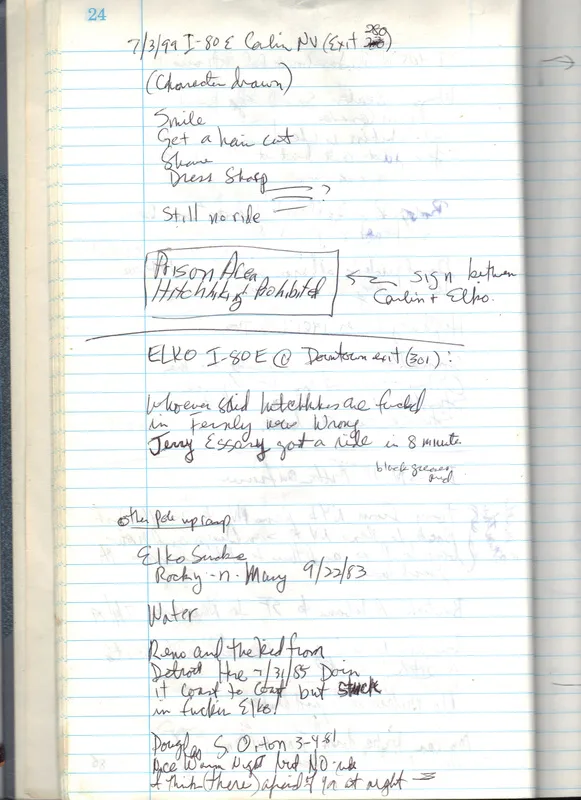 24
7/3/99 I-80 E Carlin NV (Exit 280)
(Character drawn)
Smile
Get a hair cut
Shave
Dress Sharp
?
Still no ride
Prison Area
Hitchhiking Prohibited
sign between
Carlin + Elko.
ELKO I-80 E @ Downtown exit (301):
Whoever said hitchhikers are fucked
in Fernly was Wrong
Jerry Essary got a ride in 8 minute
black grease
other pole up ramp
Elko Sucks
Rocky -n- Mary 9/22/83
Water
Reno and the kid from
Detroit Here 7/31/85 Doin
it coast to coast but stuck
in fuckin Elko!
Douglas S. Orton 3-4-81
Nice Warm Night but NO ride
I Think (there) afraid of ya at night